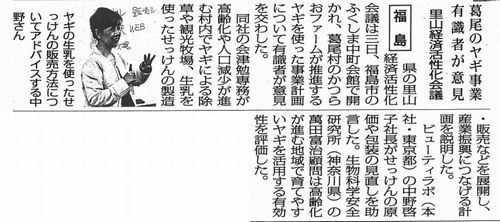 葛尾のヤギ事業
有識者が意見
里山経済活性化会議
福島
県の里山
経済活性化
会議は三日、福島市の
ふくしま中町会館で開
かれ、葛尾村のかつら
おファームが推進する
ヤギを使った事業計画
について有識者が意見
を交わした。
同社の会津勉専務が
高齢化や人口減少が進
む村内でヤギによる除
草や観光牧場、生乳を
使ったせっけんの製造
・販売などを展開し、
産業振興につなげる計
画を説明した。
ビューティラボ（本
社・東京都）の中野啓
子社長がせっけんの原
価や包装の見直しを助
言した。生物科学安全
研究所（神奈川県）の
萬田富治顧問は高齢化
が進む地域で育てやす
いヤギを活用する有効
性を評価した。
WEB
ヤギの生乳を使ったせ
っけんの販売方法につ
いてアドバイスする中
野さん